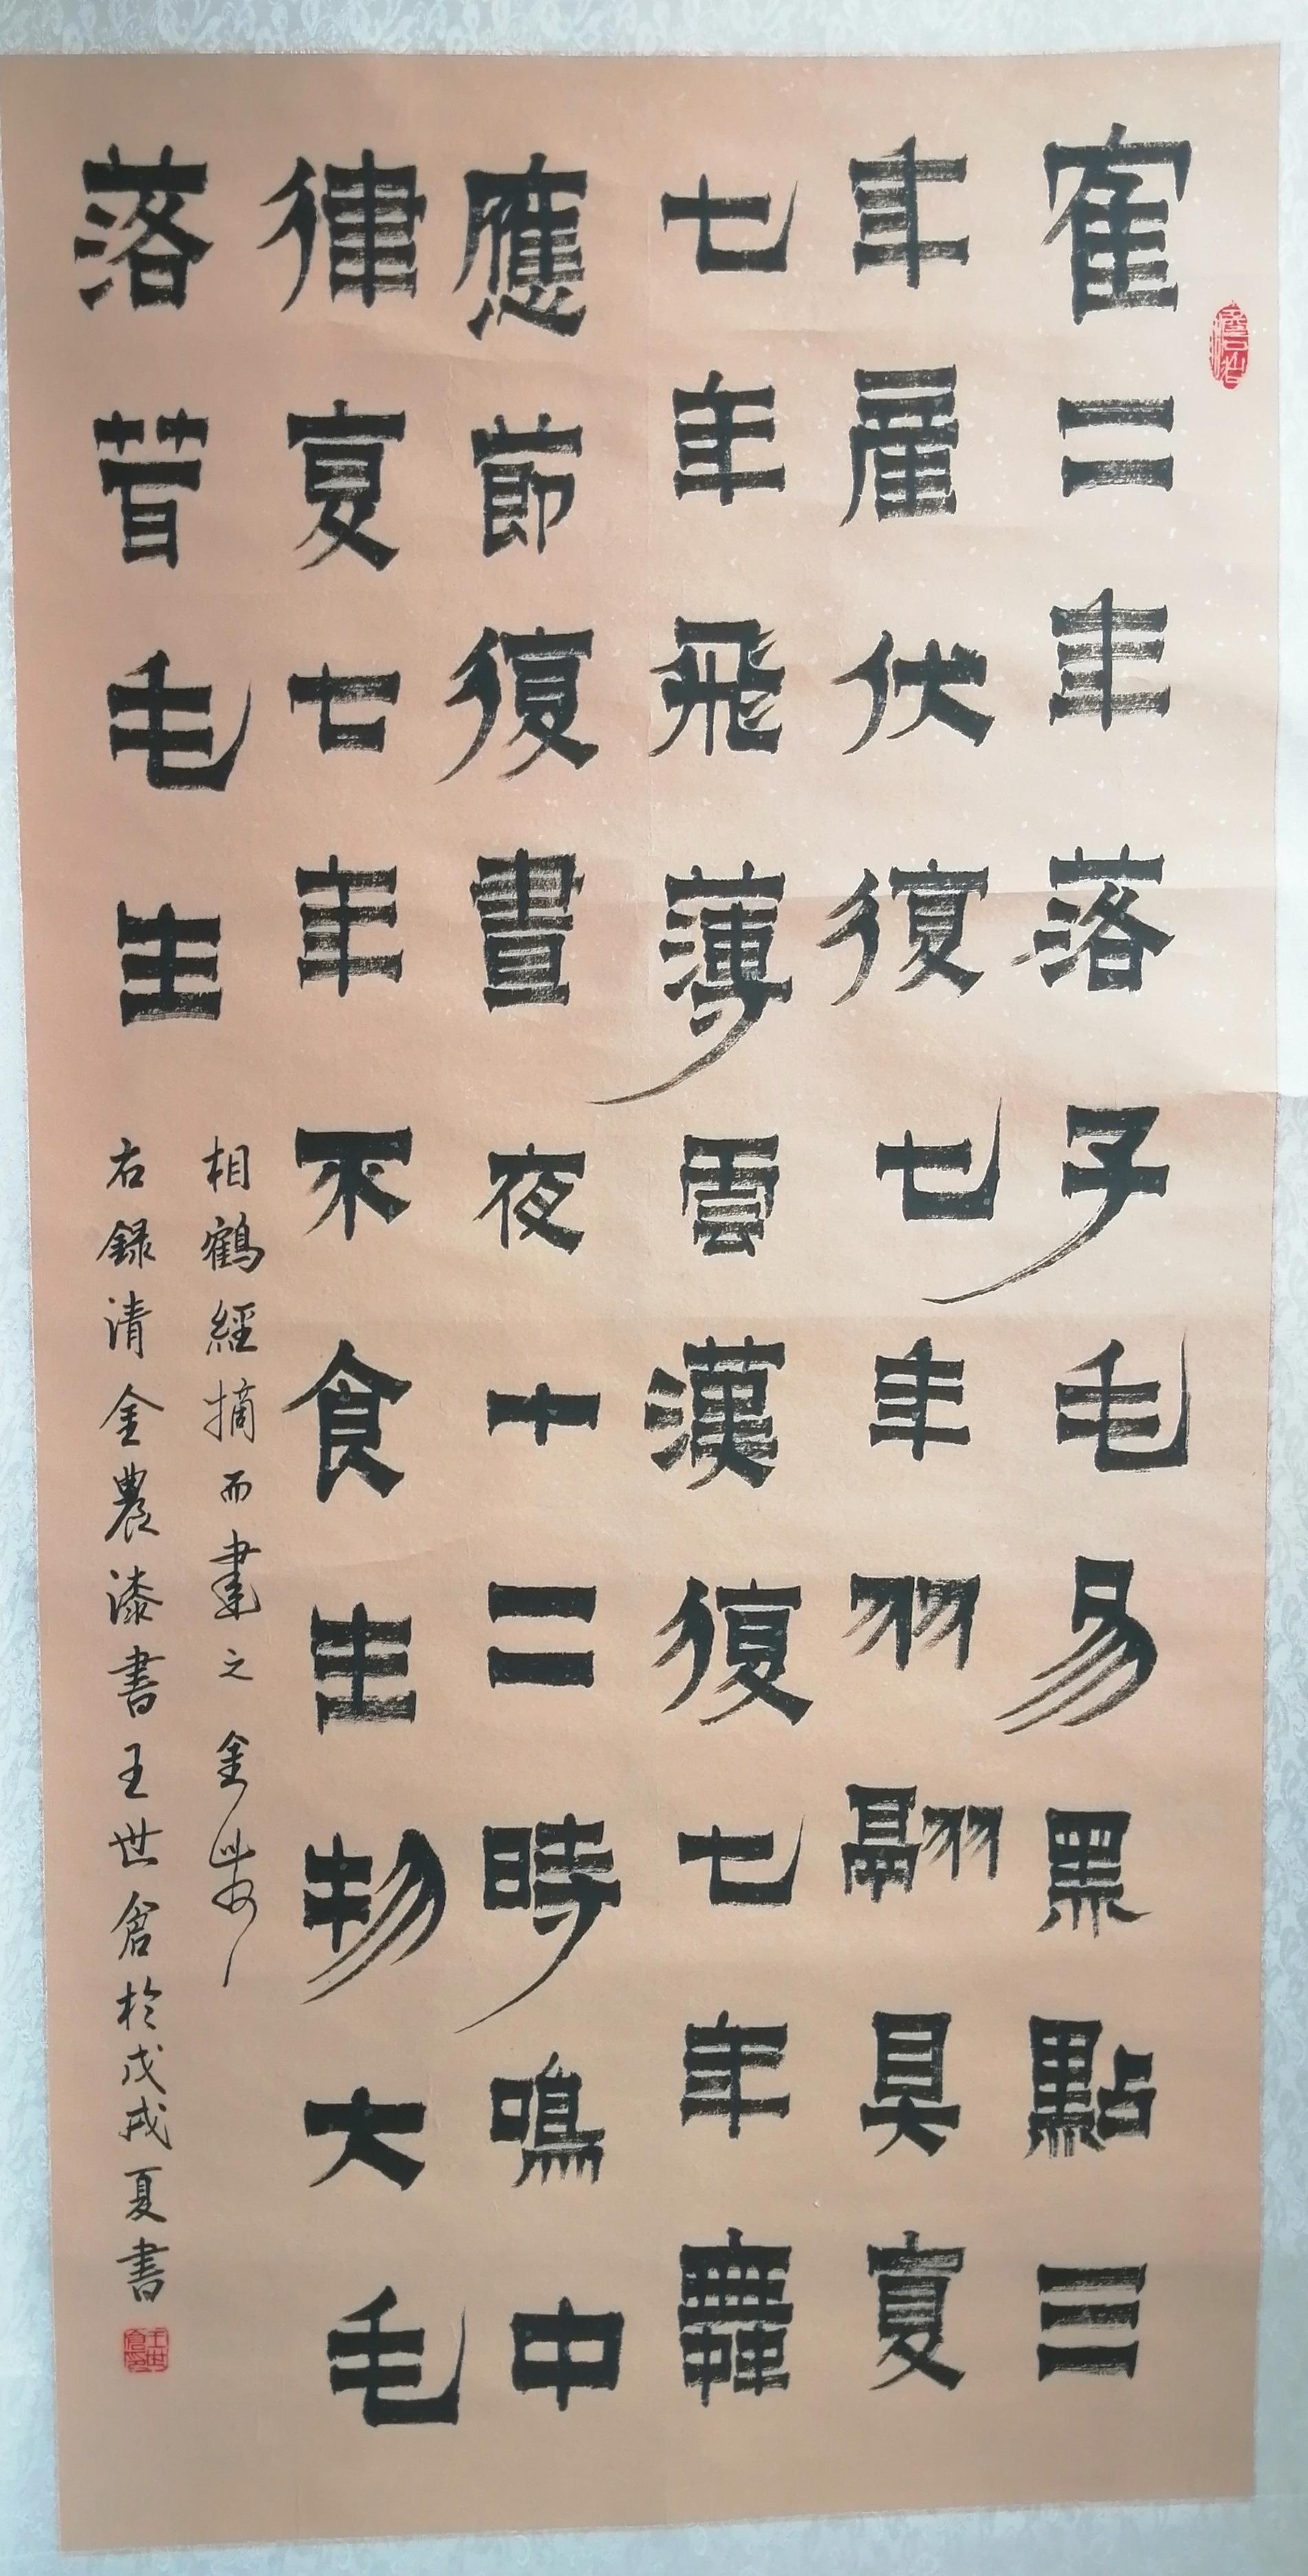 寉二年落子毛易黑點三
年產伏復七年羽翮具复
七年飛薄雲漢復七年舞
應節復晝夜十二時鳴中
律复七年不食生物大毛
落茸毛生
相鶴經摘而書之金
右錄清金農漆書王世倉於戊戌夏書
王世倉印